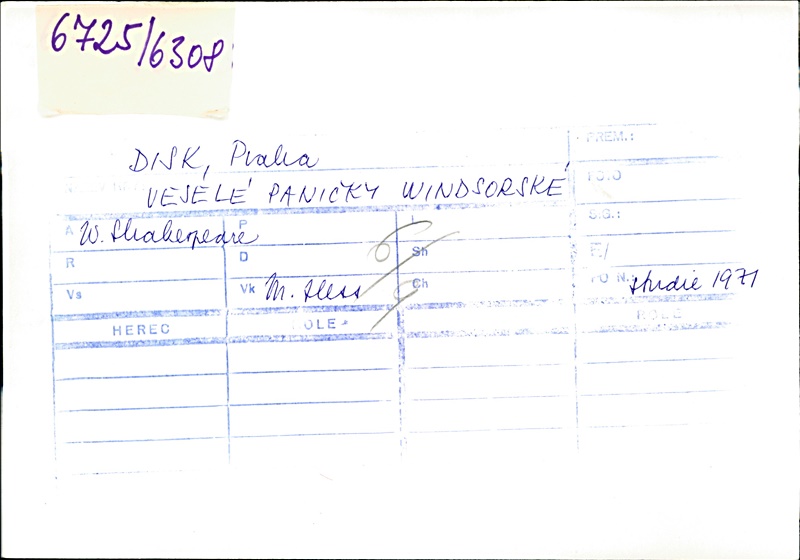 6725/6308
PREM.:
DISK, Praha
VESELÉ PANIČKY WINDSORSKÉ
S.G.:
A W. Shakespeare P
R D Sh F/
Vs Vk M. Hess Ch PO N.: studie 1971
HEREC ROLE ROLE